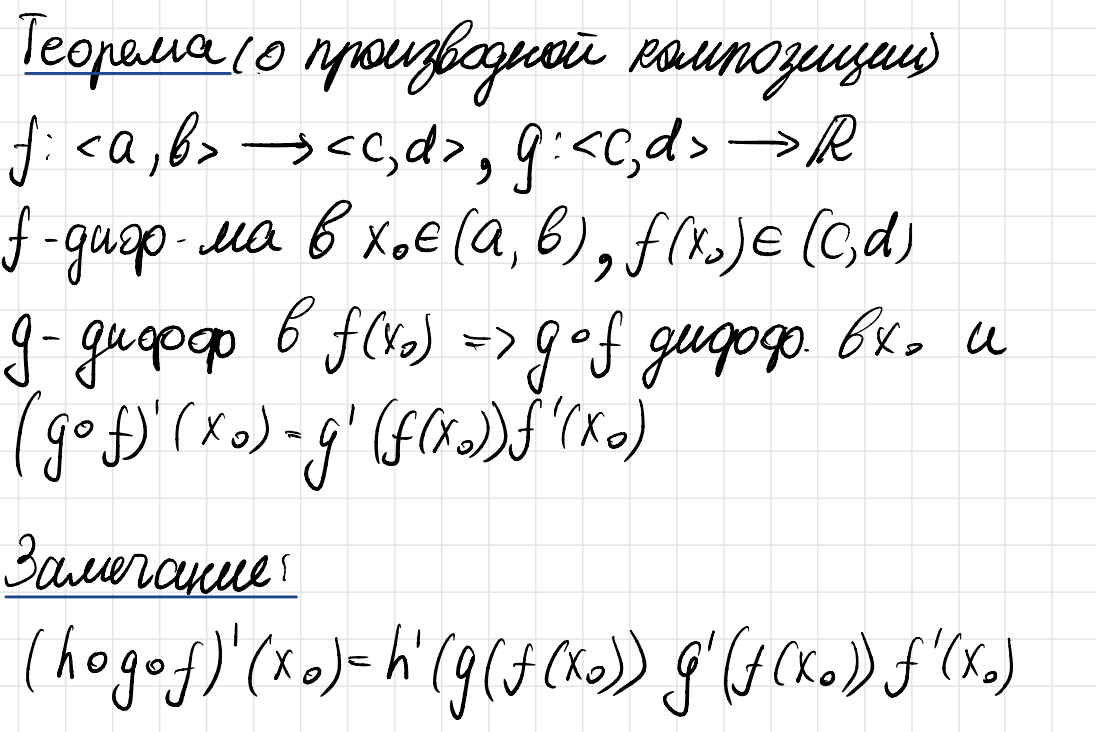 Теорема (о производной композиции)
f: <a, b> → <c, d>, g: <c, d> → ℝ
f - диф-ма в x₀ ∈ (a, b), f(x₀) ∈ (c, d)
g - дифф в f(x₀) => g∘f дифф. в x₀ и
(g∘f)'(x₀) = g'(f(x₀))f'(x₀)
Замечание:
(h∘g∘f)'(x₀) = h'(g(f(x₀)) g'(f(x₀)) f'(x₀)